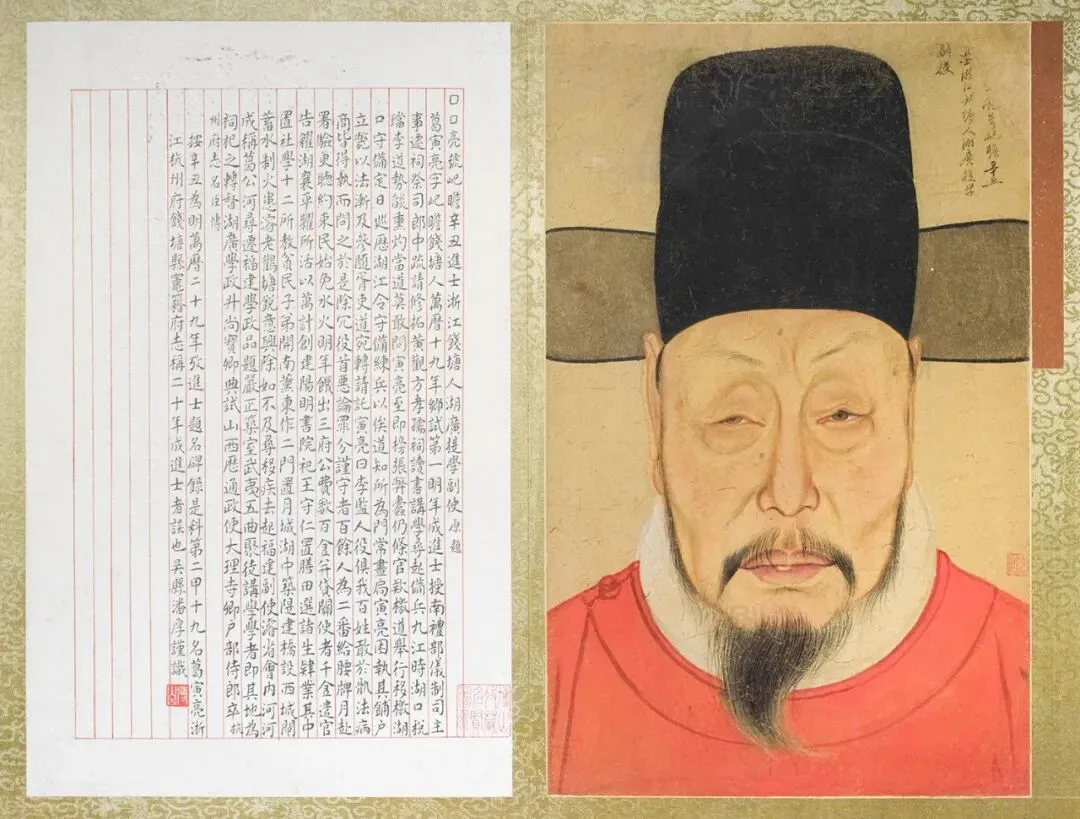 亮號屺瞻辛丑
江錢塘人湖廣提學
副使
口口亮號屺瞻辛丑進士浙江錢塘人湖廣提學副使原題
葛寅亮字屺瞻錢塘人萬曆十九年鄉試第一明年成進士授南禮部儀制司主
事遷祠祭司郎中疏請修拓黃觀方孝孺祠讀書講學尋起備兵九江時湖口稅
璫李道勢燄熏灼當道莫敢問寅亮至即榜張弊蠹仍條官欵檄道舉行移檄湖
口守備定日巡歷湖江令守備練兵以俟道知所為門常晝扃寅亮因執其鋪戶
立斃以法漸及參隨胥吏道宛轉請託寅亮曰李監人役俱我百姓敢於骩法病
商皆得執而問之於是除冗役首惡論罪分謹守者百餘人為二番給腰牌月赴
署驗更聽約束民始免水火明年饑出三府公費數百金并貸關使者千金遣官
告糴湖襄平糶所活以萬計創建陽明書院祀王守仁置膳田選諸生肄業其中
置社學十二所教貧民子弟開南薰東作二門置月城湖中築隄建橋設西城閘
蓄水制火患濬老鸛塘銳意興除如不及尋移疾去起福建副使濬省會內河河
成稱葛公河尋遷福建學政品題嚴正築室武夷五曲聚徒講學學者即其地為
祠祀之轉督湖廣學政升尚寶卿典試山西歷通政使大理寺卿戶部侍郎卒杭
州府志名臣傳
按辛丑為明萬曆二十九年攷進士題名碑錄是科第二甲十九名葛寅亮浙
江杭州府錢塘縣竈籍府志稱二十年成進士者誤也吳縣潘厚謹識